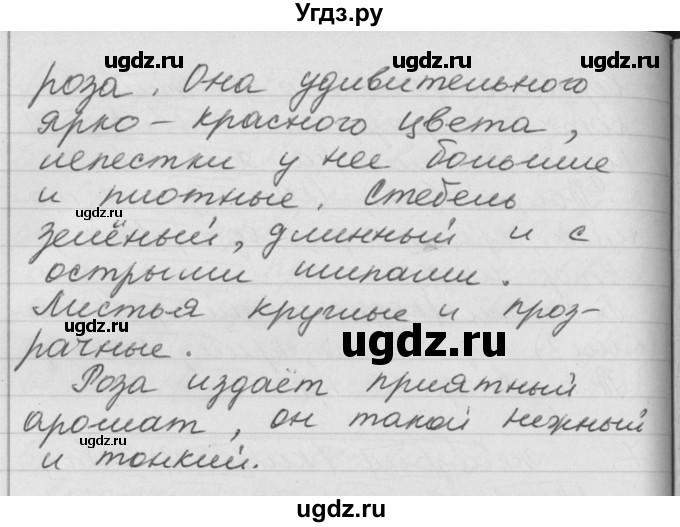 Угдз.ру
роза. Она удивительного
ярко-красного цвета,
лепестки у нее большие
и плотные. Стебель
зелёный, длинный и с
острыми шипами.
Листья круглые и проз-
рачные.
Роза издаёт приятный
аромат, он такой нежный
и тонкий.
ugdz.ru
ugdz.ru
ugdz.ru
ugdz.ru
ugdz.ru
ugdz.ru
ugdz.ru
ugdz.ru
ugdz.ru